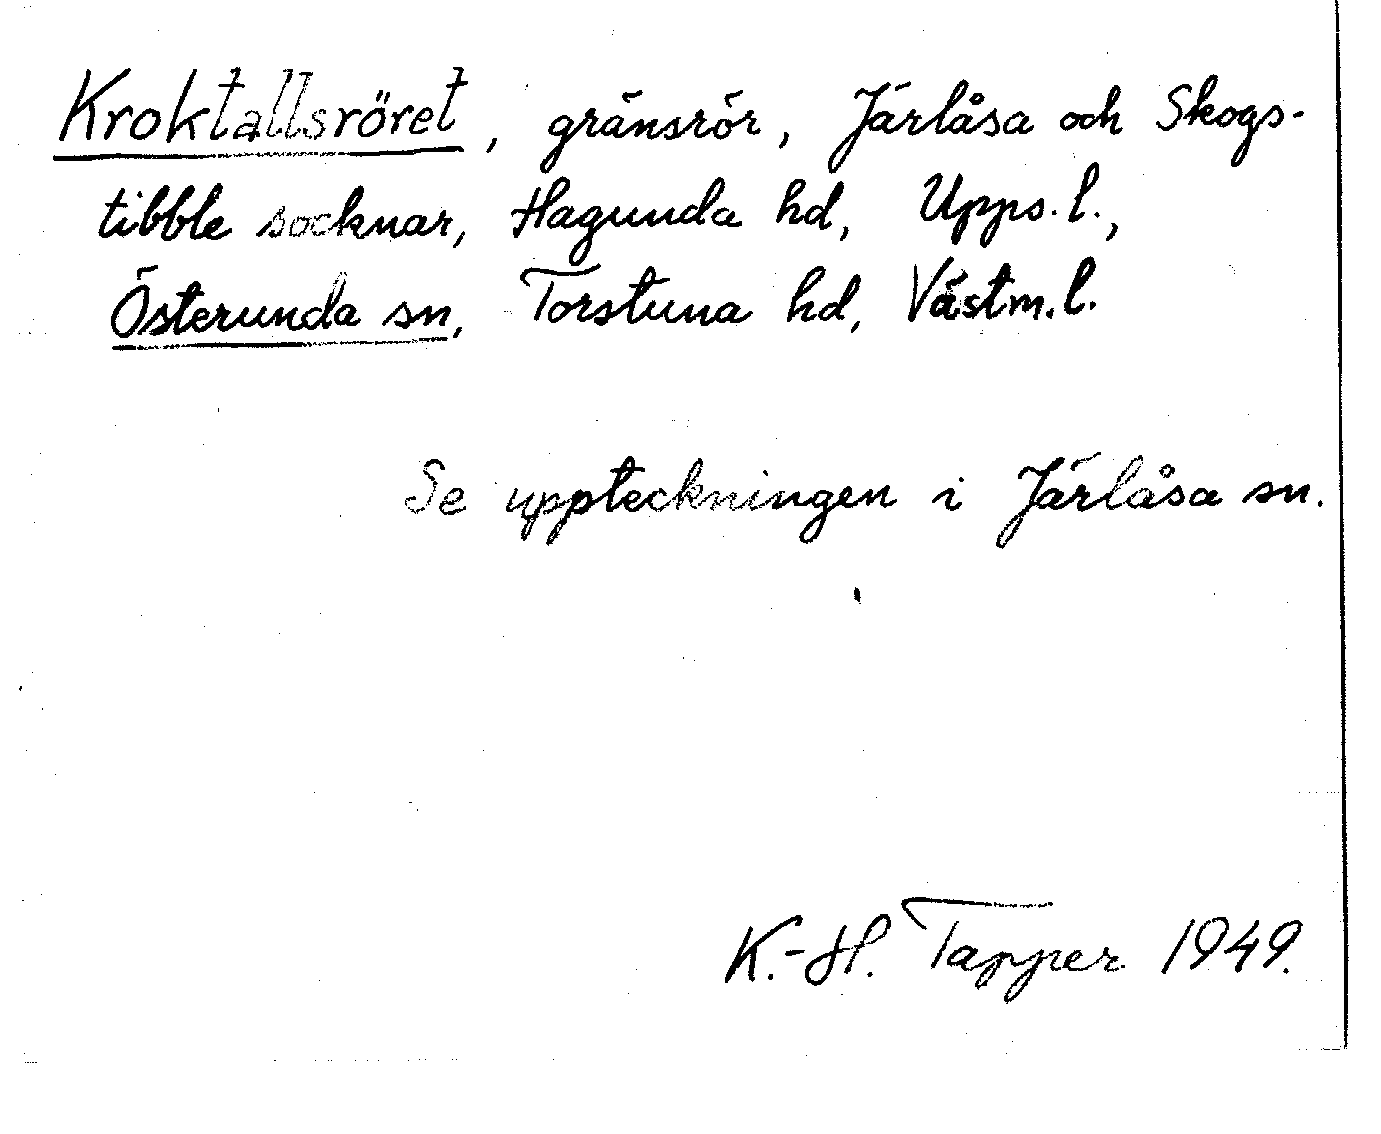 Kroktallsröret, gränsrör, Järlåsa och Skogs-
tibble socknar, Hagunda hd, Upps. l.,
Österunda sn, Torstuna hd, Västm. l.
Se uppteckningen i Järlåsa sn.
K.-H. Tapper 1949.